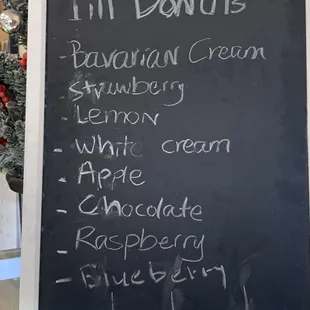 Donuts
- Bavarian Cream
strawberry
- Lemon
- White cream
- Apple
- Chocolate
- Raspberry
- Blueberry